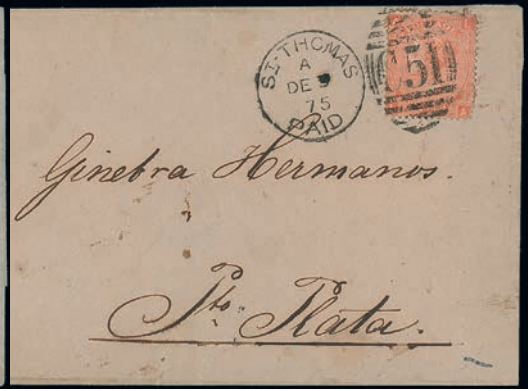 ST. THOMAS
A
DE 9
75
PAID
C51
Ginebra Hermanos.
Pto Plata.